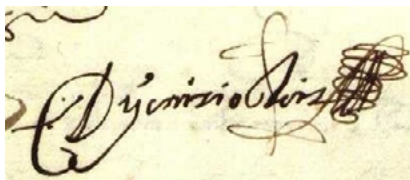 Dyonizio Roiz